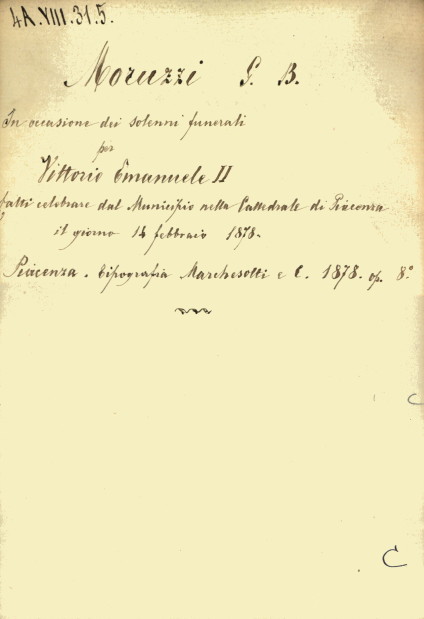 4A.VIII.31.5.
Moruzzi G. B.
In occasione dei solenni funerali
per
Vittorio Emanuele II
fatti celebrare dal Municipio nella Cattedrale di Piacenza
il giorno 14 febbraio 1878.
Piacenza. Tipografia Marchesotti e C. 1878. op. 8°
C
C